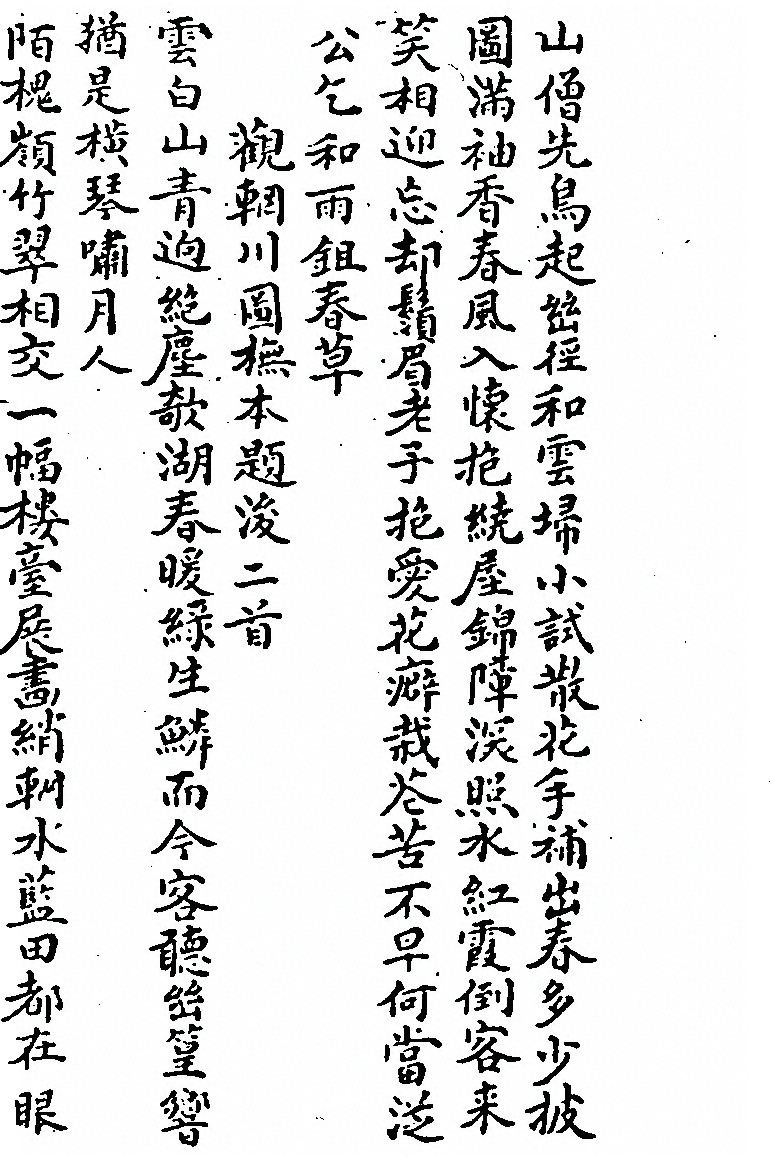 山僧先鳥起幽徑和雲埽小試散花手補出春多少披
圖滿袖香春風入懷抱繞屋錦障深照水紅霞倒客来
笑相迎忘却鬚眉老子抱愛花癖栽花苦不早何當從
公乞和雨鉏春草
觀輞川圖橅本題後二首
雲白山青迥絶塵欹湖春暖緑生鱗而今客聽幽篁響
猶是橫琴嘯月人
陌槐嶺竹翠相交一幅樓臺展畵綃輞水藍田都在眼